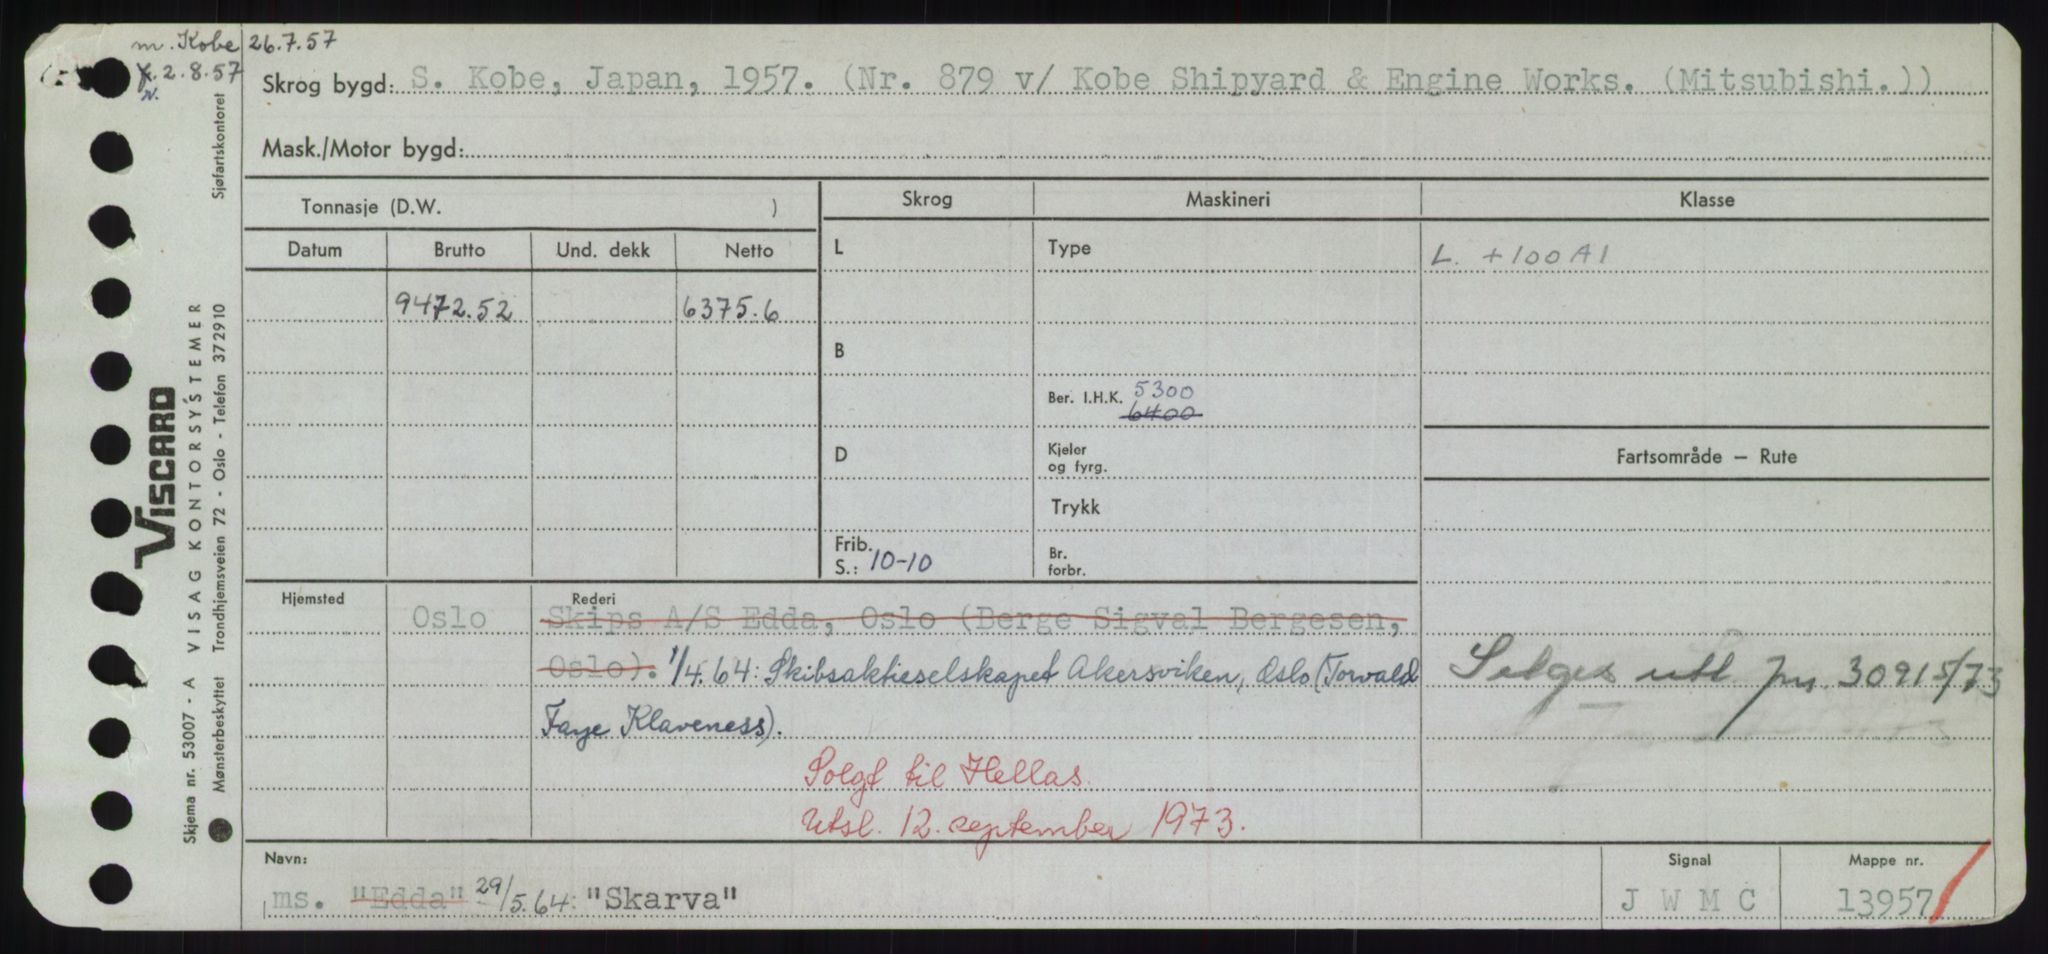 m. Kobe 26.7.57
f. 2.8.57
N.
Skrog bygd: S. Kobe, Japan, 1957. (Nr. 879 v/ Kobe Shipyard & Engine Works. (Mitsubishi.))
Mask./Motor bygd:
Tonnasje (D.W. ) Skrog Maskineri Klasse
Datum Brutto Und. dekk Netto L Type L. +100A1
9472.52 6375.6
B
Ber. I.H.K. 5300
6400
D Kjeler og fyrg. Fartsområde – Rute
Trykk
Frib. S.: 10-10 Br. forbr.
Hjemsted Rederi
Oslo Skips A/S Edda, Oslo (Berge Sigval Bergesen,
Oslo). 1/4.64: Skibsaktieselskapet Akersviken, Oslo (Torvald
Faye Klaveness).
Selges utl. 30915/73
Solgt til Hellas.
Utsl. 12. september 1973.
Navn: Signal Mappe nr.
ms. "Edda" 29/5.64: "Skarva" J W M C 13957
VISCARD
Skjema nr. 53007 - A VISAG KONTORSYSTEMER
Mønsterbeskyttet Trondhjemsveien 72 - Oslo - Telefon 372910 Sjøfartskontoret